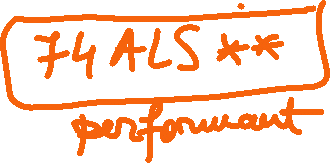 74ALS**
performant